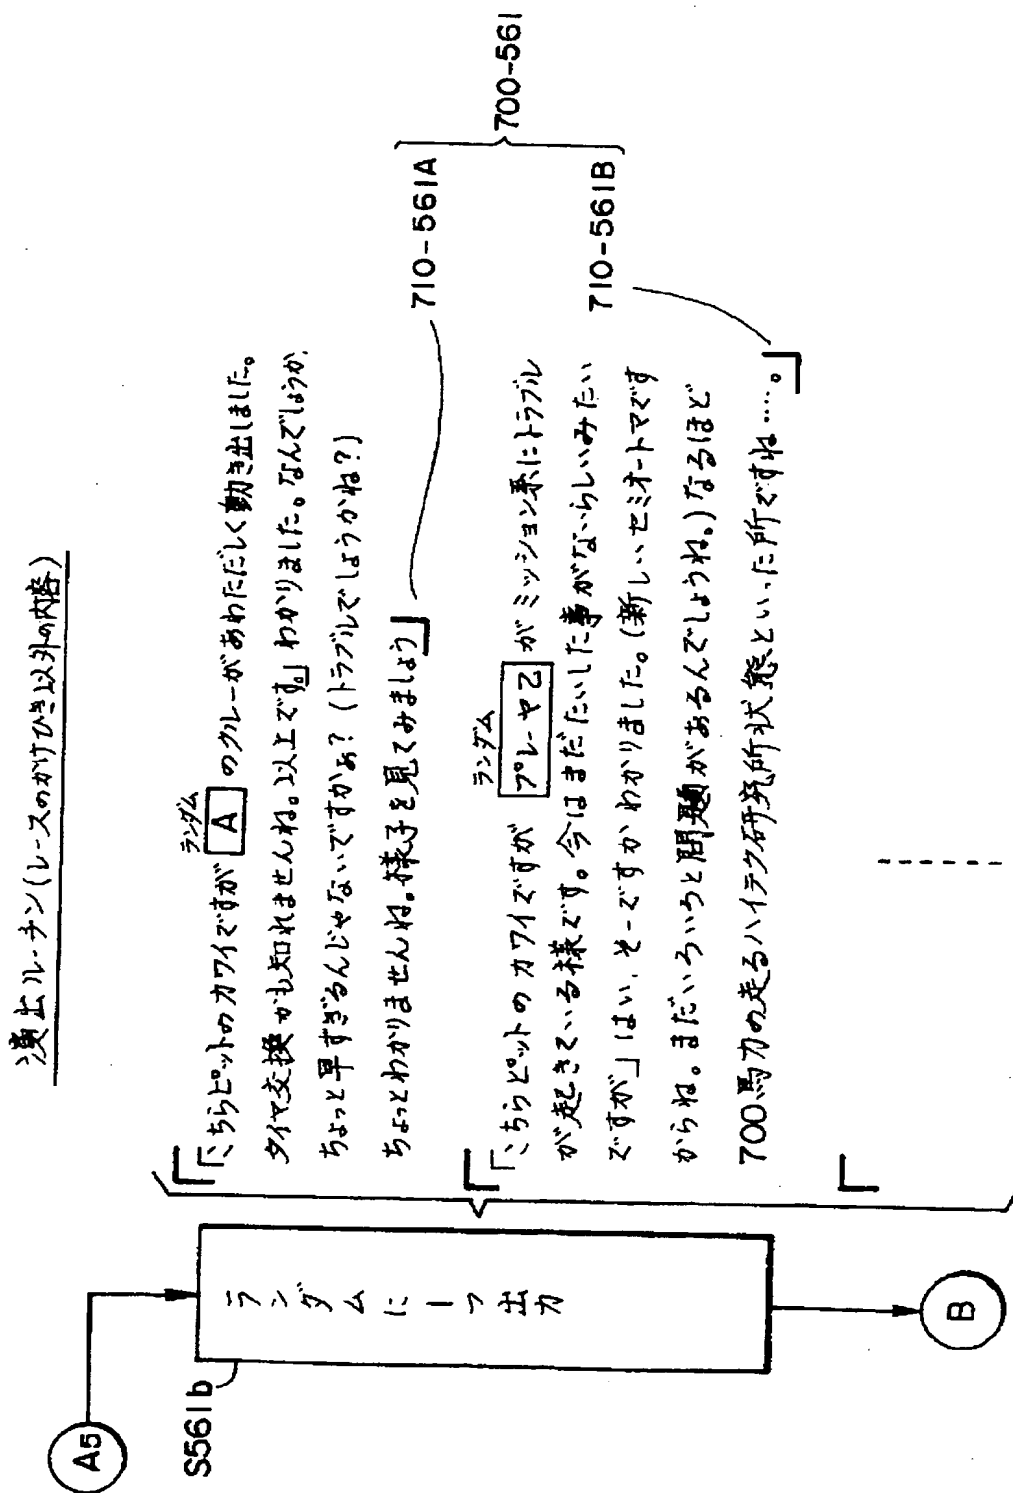 演出ルーチン(レースのかけひき以外の内容)
A5
S561b
ランダムに1つ出力
B
ランダム
「こちらピットのカワイですが A のクルーがあわただしく動き出しました。
タイヤ交換かも知れませんね。以上です。」わかりました。なんでしょうか、
ちょっと早すぎるんじゃないですかぁ?(トラブルでしょうかね?)
ちょっとわかりませんね。様子を見てみましょう
710-561A
ランダム
「こちらピットのカワイですが プレーヤ乙 がミッション系にトラブル
が起きている様です。今はまだたいした事がないらしいみたい
ですが」はい、そーですかわかりました。(新しいセミオートマです
からね。まだいろいろと問題があるんでしょうね。)なるほど
700馬力の走るハイテク研究所状態といった所ですね……。
710-561B
700-561